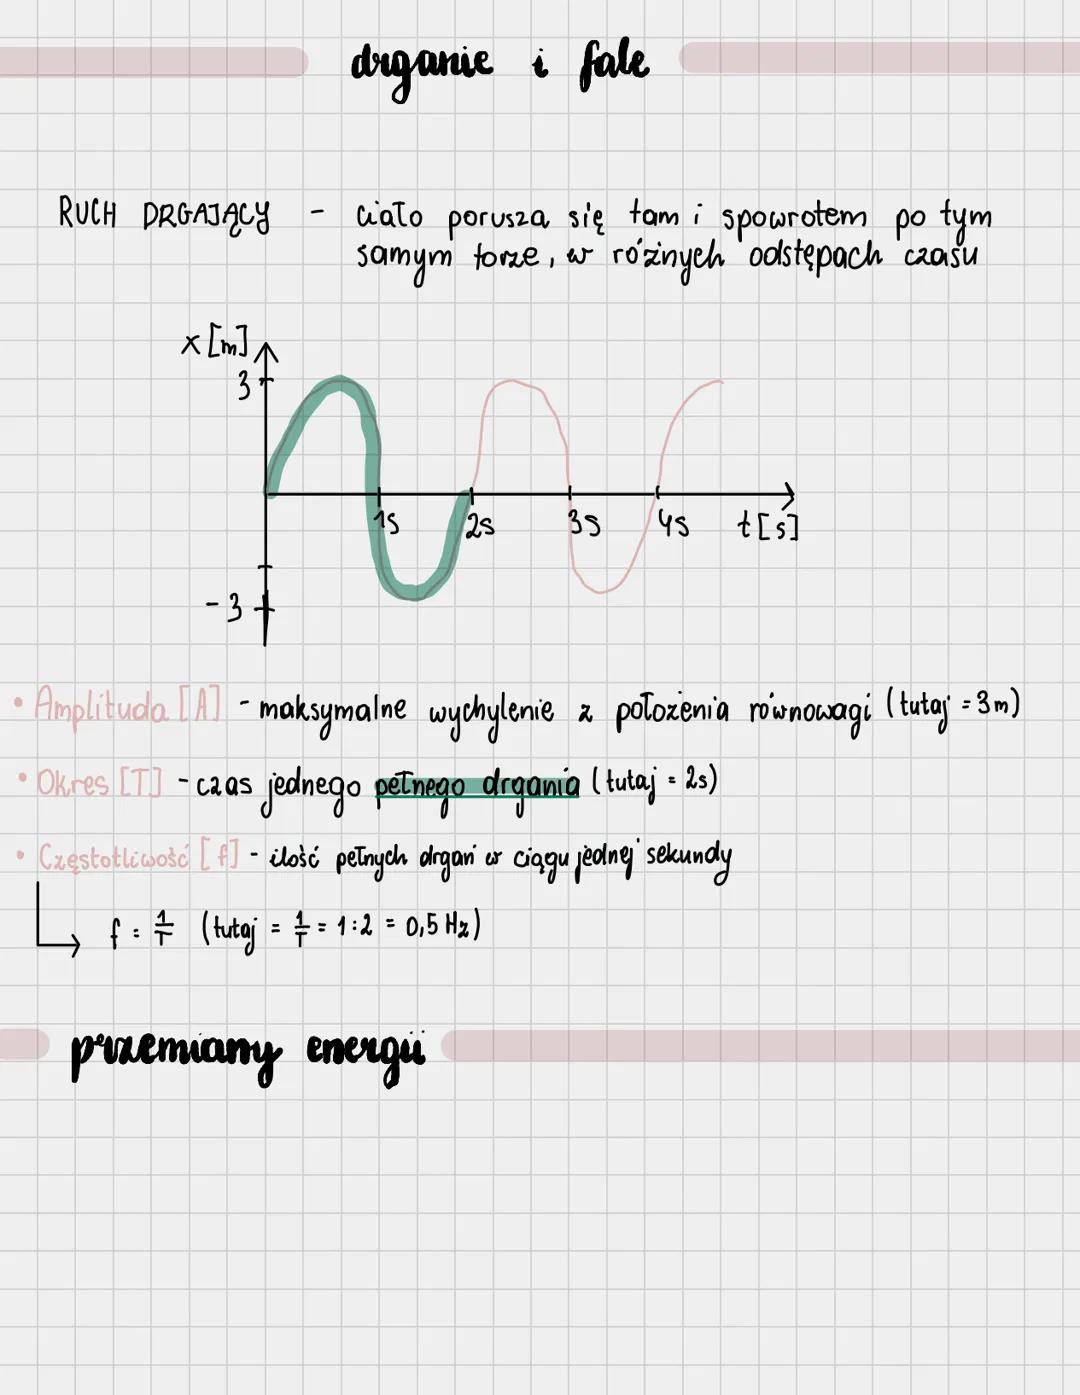 drganie i fale
RUCH DRGAJĄCY - ciało porusza się tam i spowrotem po tym
samym torze, w różnych odstępach czasu
x [m]
3
1s 2s 3s 4s t[s]
-3
• Amplituda [A] - maksymalne wychylenie z położenia równowagi (tutaj = 3m)
• Okres [T] - czas jednego pełnego drgania (tutaj = 2s)
• Częstotliwość [f] - ilość pełnych drgań w ciągu jednej sekundy
f = 1/T (tutaj = 1/T = 1:2 = 0,5 Hz)
przemiany energii